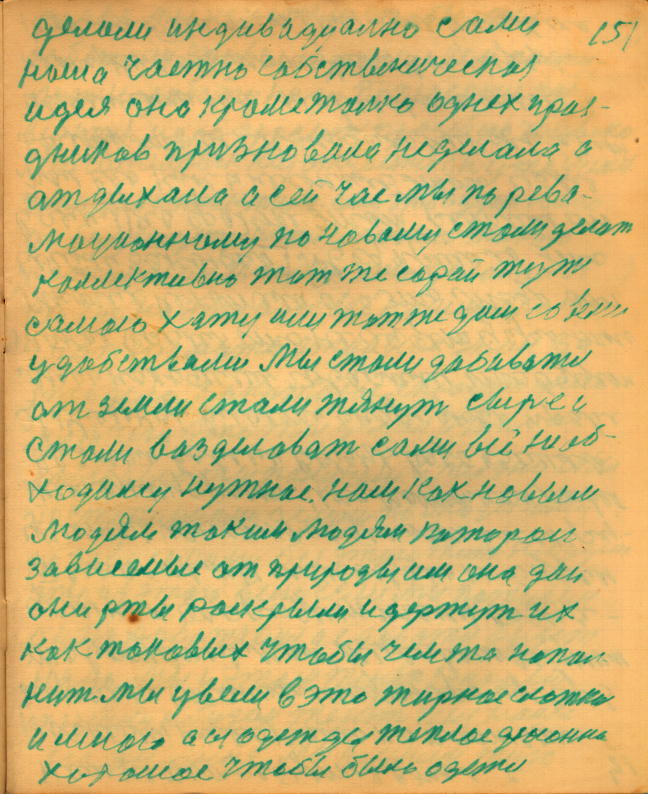 делали индивидуално сами 151
наша частно собственическая
идея она кроме толко однех праз-
дников призновала неделала а
атдыхала а сей час мы по рева-
люционному по новаму стали делат
коллективно тот же сарай туж
самаю хату или тот же дом со всеми
удобствами мы стали дабывати
от земли стали тянут сырье и
стали вазделоват сами всё необ-
ходимое нужное. нам как новым
людям таким людям катораи
зависемые от природы им она дай
они рты раскрыли и держут их
как таковых чтобы чем та напол-
нит мы увели в это жирное слатко
и много а и одежды теплое
хорошое чтобы было одети